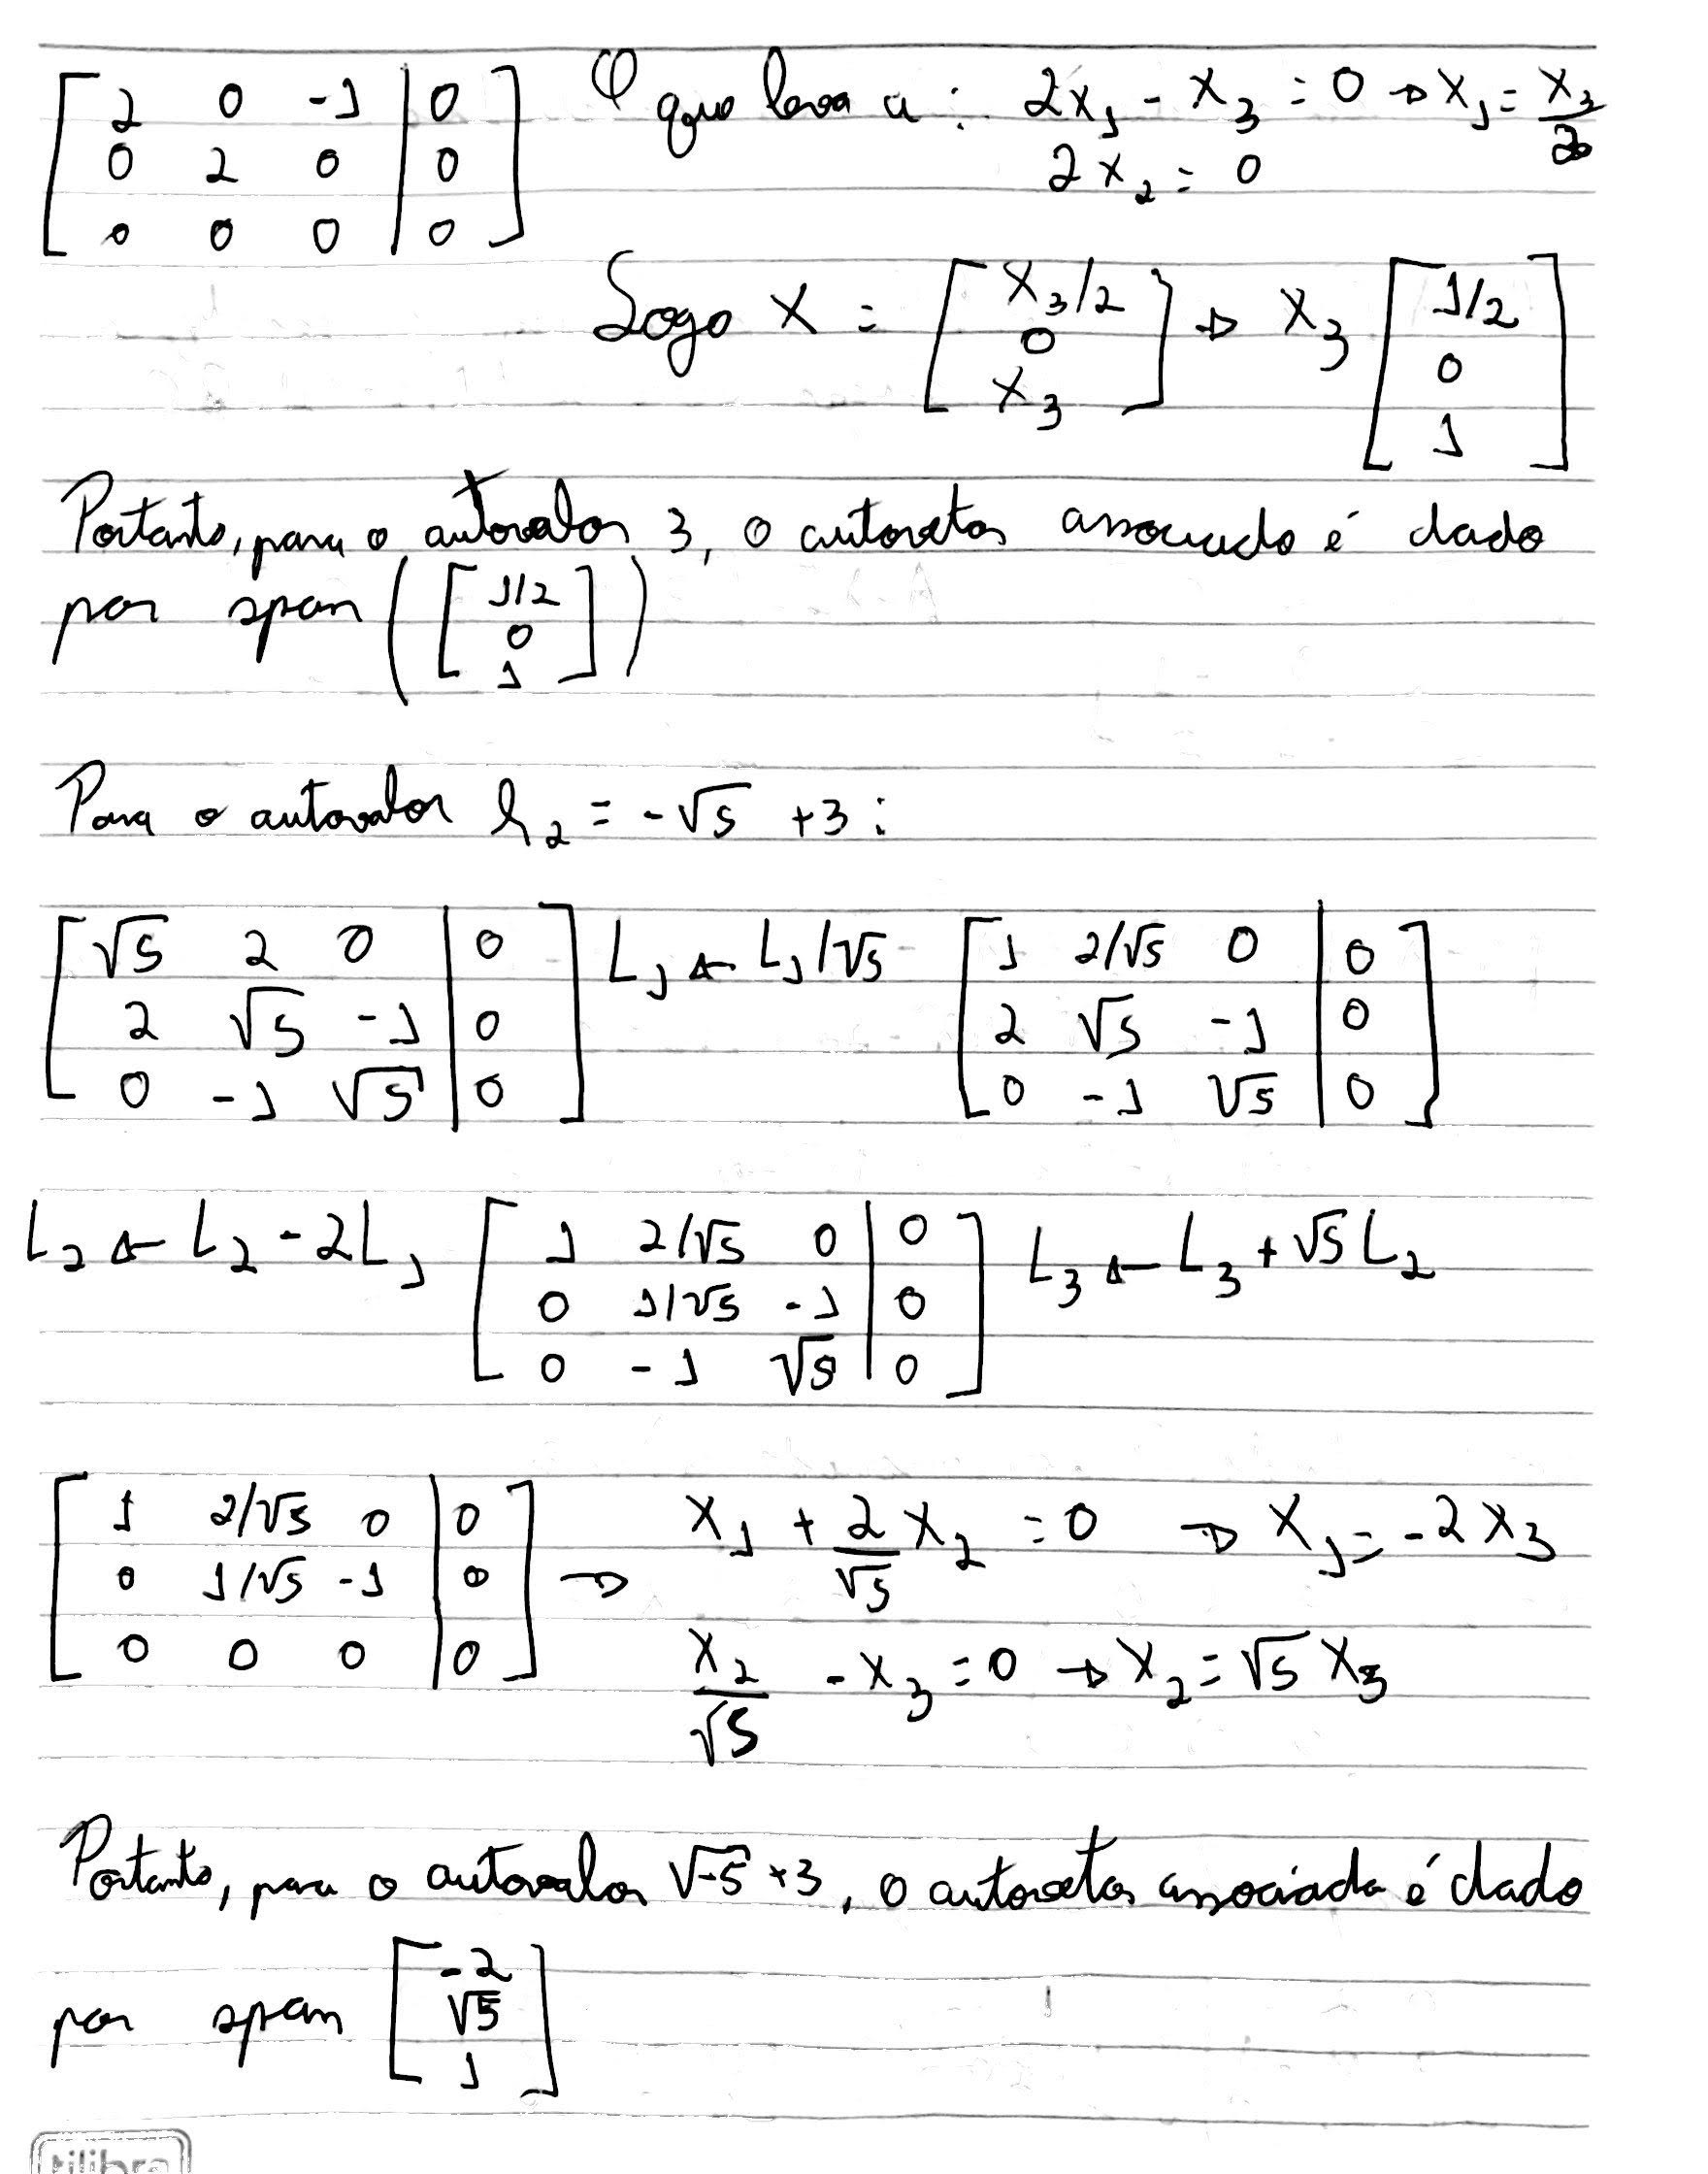 [2 0 -1 | 0] O que leva a: 2x₁ - x₃ = 0 → x₁ = x₃/2
[0 2 0 | 0] 2x₂ = 0
[0 0 0 | 0]
Logo X = [x₃/2 0 x₃] → x₃ [1/2 0 1]
Portanto, para o autovalor 3, o autovetor associado é dado
por span ([1/2 0 1])
Para o autovalor λ₂ = -√5 + 3:
[√5 2 0 | 0] L₁ ← L₁/√5 [1 2/√5 0 | 0]
[2 √5 -1 | 0] [2 √5 -1 | 0]
[0 -1 √5 | 0] [0 -1 √5 | 0]
L₂ ← L₂ - 2L₁ [1 2/√5 0 | 0] L₃ ← L₃ + √5 L₂
[0 1/√5 -1 | 0]
[0 -1 √5 | 0]
[1 2/√5 0 | 0] → x₁ + 2/√5 x₂ = 0 → x₁ = -2x₃
[0 1/√5 -1 | 0]
[0 0 0 | 0] x₂/√5 - x₃ = 0 → x₂ = √5 x₃
Portanto, para o autovalor √-5 + 3, o autovetor associado é dado
por span [-2 √5 1]
tilibra